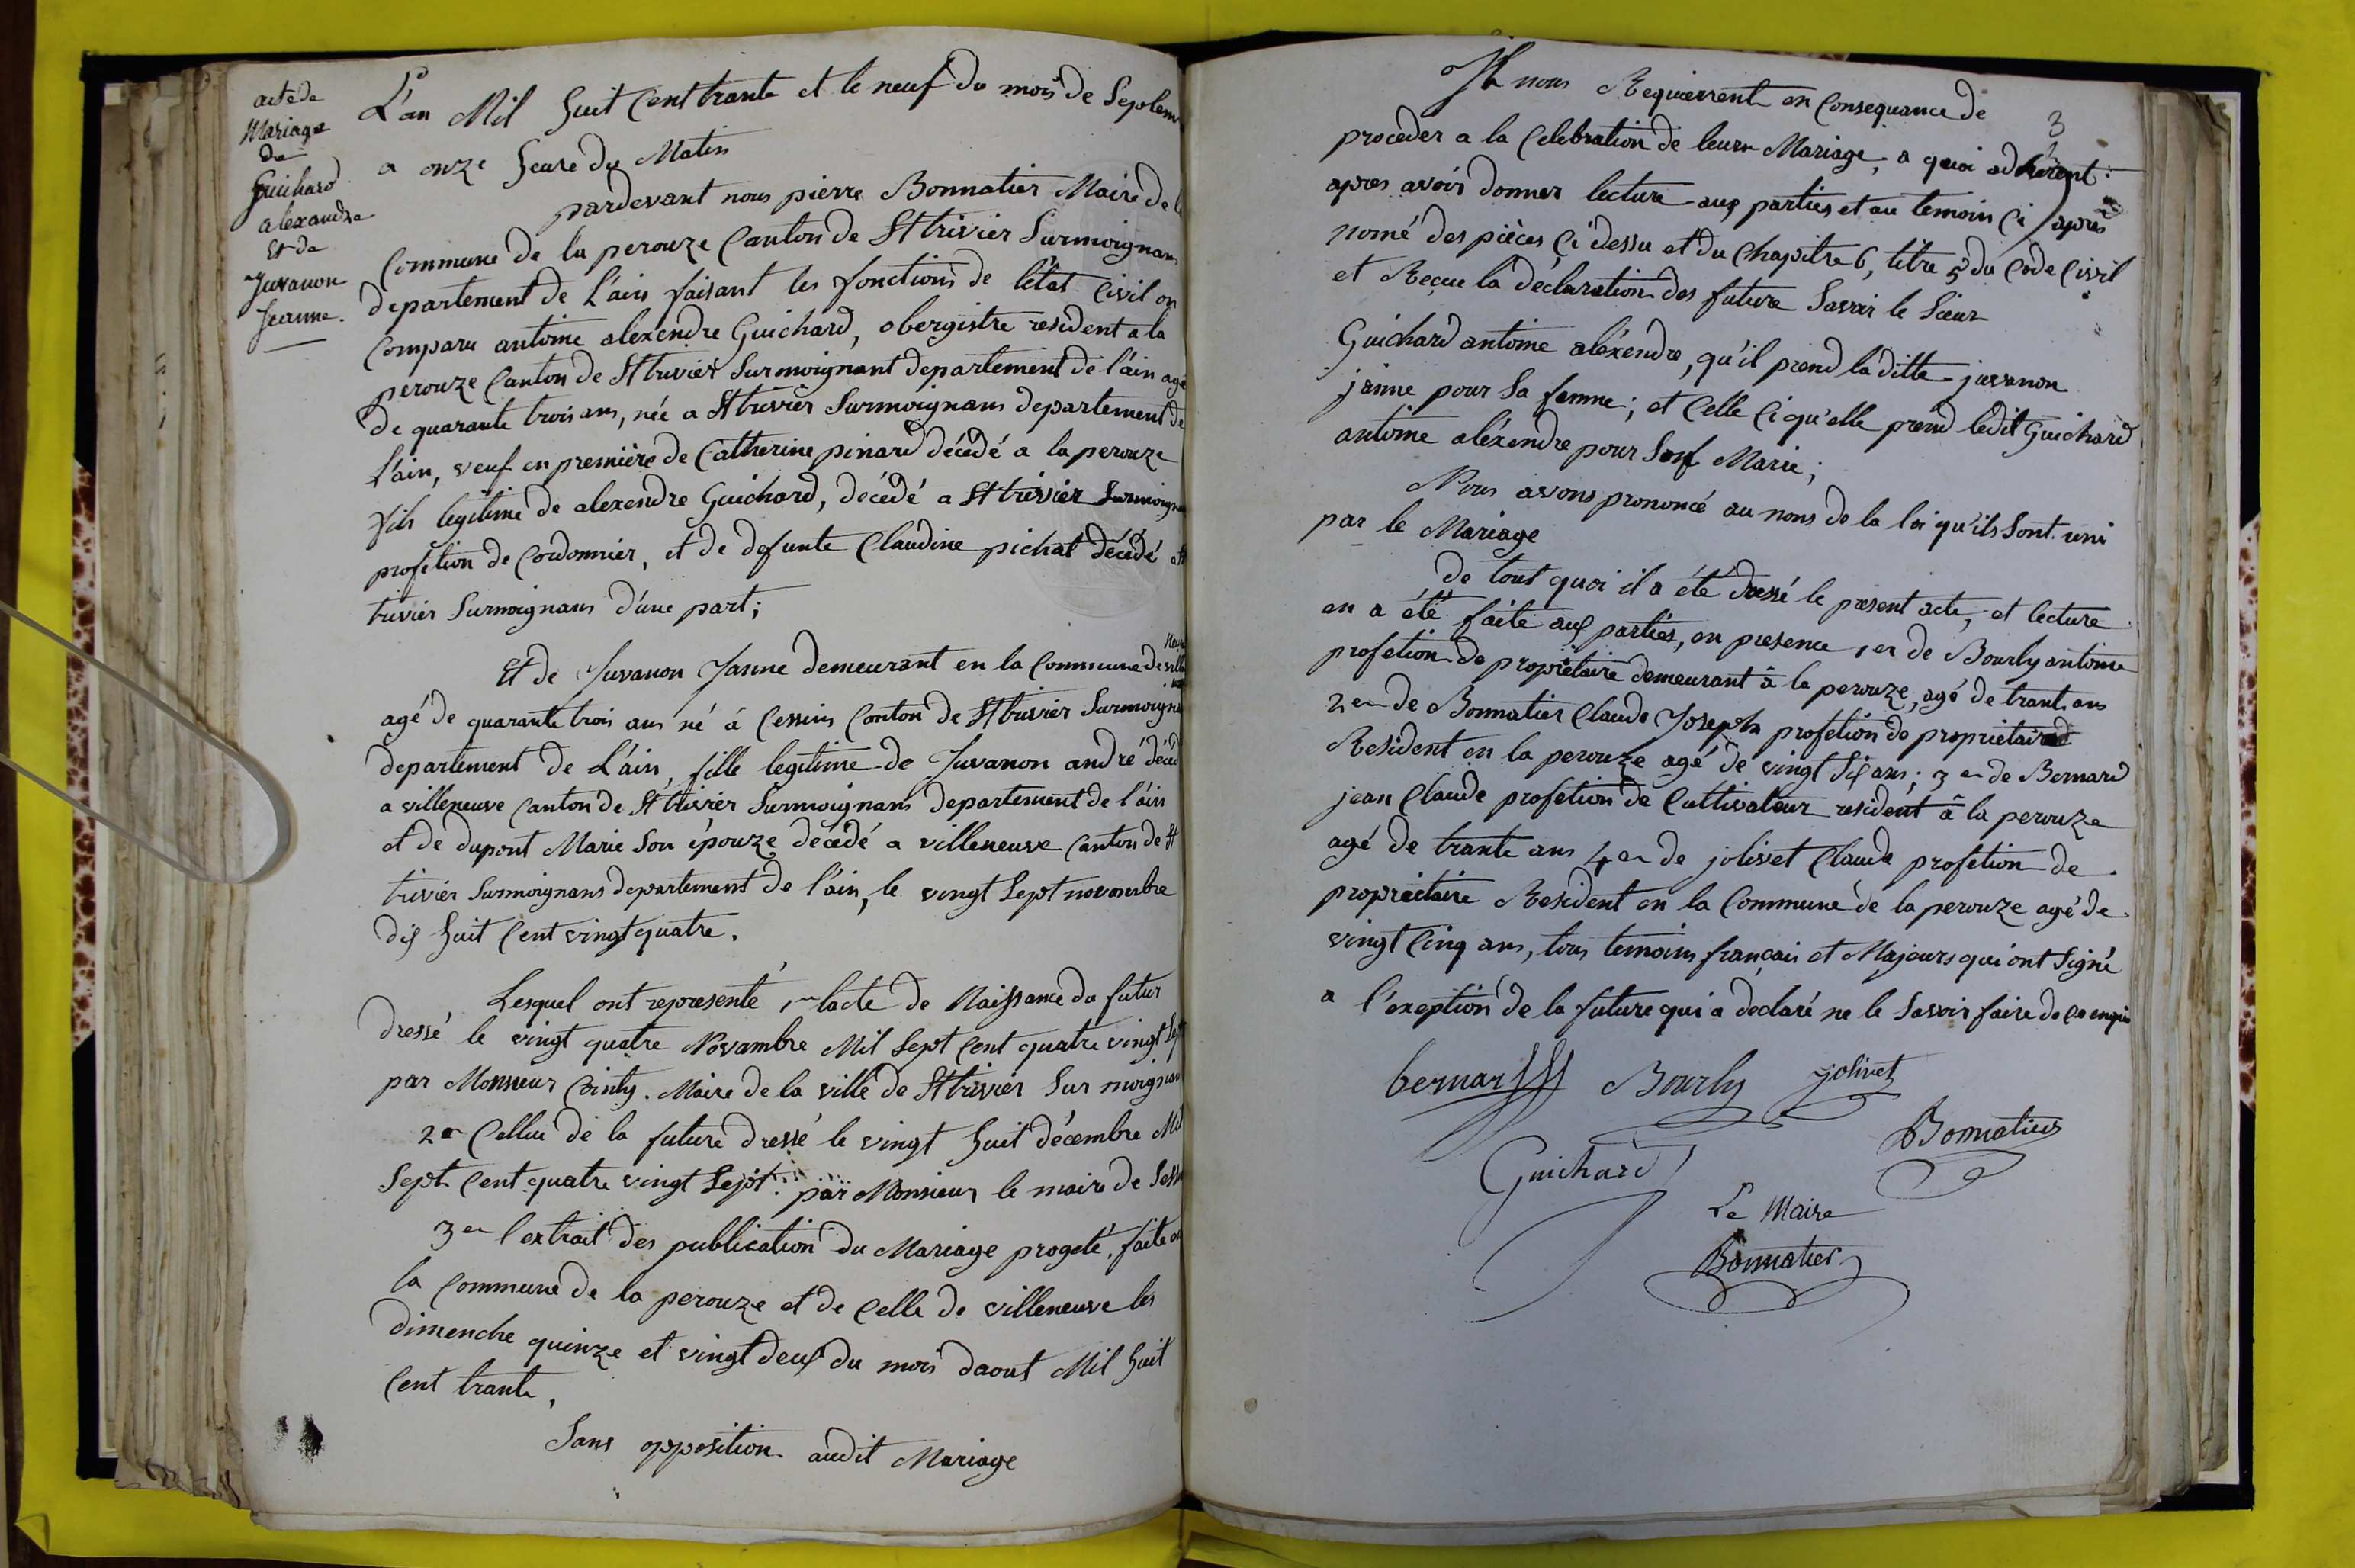 acte de
Mariage
de
Guichard
alexandre
Et de
Juvanon
Jeanne.
L'an Mil huit Cent trante et le neuf du mois de Septem
a onze heure du Matin
pardevant nous pierre Bonnatier Maire de l
Commune de la perouze Canton de St trivier Surmoignans
departement de L'ain faisant les fonctions de l'état Civil on
Comparu antoine alexendre Guichard, obergistre resident a la
perouze Canton de St trivier Surmoignant departement de l'ain agé
de quarante trois ans, née a St trivier Surmoignans departement de
l'ain, veuf en première de Catherine pinard décédé a la perouze
fils legitime de alexendre Guichard, décédé a St trivier Surmoign
profetion de Cordonnier, et de defunte Claudine pichat décédé a St
trivier Surmoignans d'une part;
Et de Juvanon Janne demeurant en la Commune de ville
neuve
agé de quarante trois ans né à Cessins Conton de St trivier Surmoign
departement de L'ain, fille legitime de Juvanon andré décéd
a villeneuve Canton de St trivier Surmoignans departement de l'ain
et de dupont Marie Son épouze décédé a villeneuve Canton de St
trivier Surmoignans departement de l'ain, le vingt Sept novembre
dix huit Cent vingt quatre.
Lesquel ont representé 1er lacte de Naissance du futur
dressé le vingt quatre Novambre Mil Sept Cent quatre vingt Sept
par Monsieur Cointy. Maire de la ville de St trivier Sur moignan
2er Cellui de la future dressé le vingt huit décembre Mil
Sept Cent quatre vingt Sept. par Monsieur le maire de Sess
3er l'extrait des publication du Mariage progeté, faite en
la Commune de la perouze et de Celle de villeneuve les
dimenche quinze et vingt deux du mois daout Mil huit
Cent trante,
Sans opposition audit Mariage
3
Il nous Requierrent en Consequance de
proceder a la Celebration de leurr Mariage, a quoi adhérent:
apres avoir donner lecture aux parties et au temoin Ci après
nomé des pièces Ci dessu et du Chapitre 6, titre 5 du Code Civil
et Reçue la déclaration des future Savoir le Sieur
Guichard antoine aléxendre, qu'il prend la ditte juvanon
janne pour Sa femme; et Celle Ci qu'elle prend ledit Guichard
antoine aléxendre pour Son Marie;
Nous avons prononcé au nons de la loi qu'ils Sont uni
par le Mariage
de tout quoi il a été dressé le present acte, et lecture
en a été faite aux parties, en presence 1er de Bourly antoine
profetion de propriétaire demeurant à la perouze, agé de trant ans
2er de Bonnatier Claude Joseph profetion de propriétaire
Resident en la perouze agé de vingt Six ans; 3er de Bernard
jean Claude profetion de Cultivateur resident à la perouze
agé de trante ans 4er de jolivet Claude profetion de
propriétaire Resident en la Commune de la perouze agé de
vingt Cinq ans, tous temoins français et Majeurs qui ont Signé
a l'exeption de la future qui a declaré ne le Savoir faire de Ce enquis
bernard Bourly jolivet
Bonnatier
Guichard
Le Maire
Bonnatier